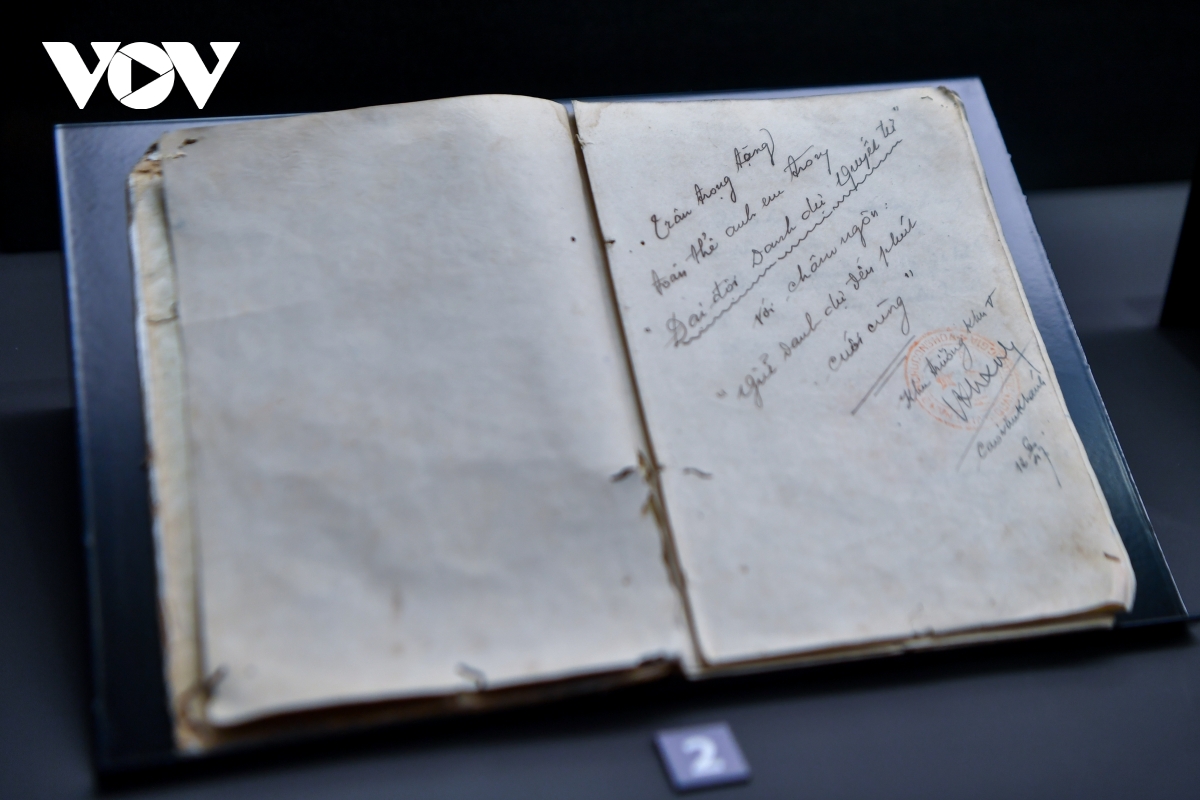 VOV
Trân trọng tặng
toàn thể anh em trong
"Đại đội Danh dự Quyết tử"
với châm ngôn:
"Giữ Danh dự đến phút
cuối cùng"
Khu trưởng Khu V
Cao Văn Khánh
2